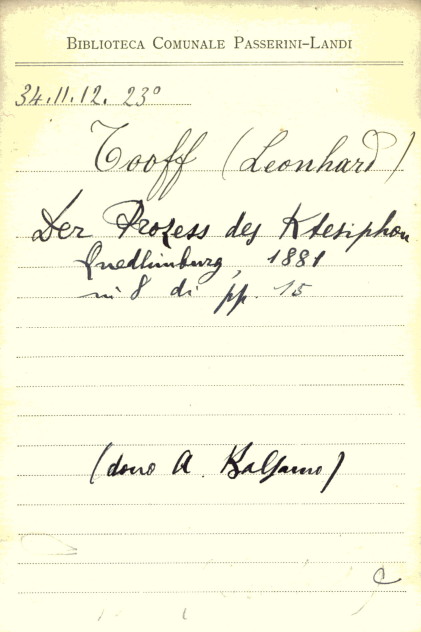 BIBLIOTECA COMUNALE PASSERINI-LANDI
34.II.12. 23°
Tooff (Leonhard)
Der Prozess des Ktesiphon
Quedlimburg, 1881
in 8 di pp. 15
(dono A. Balsamo)
C